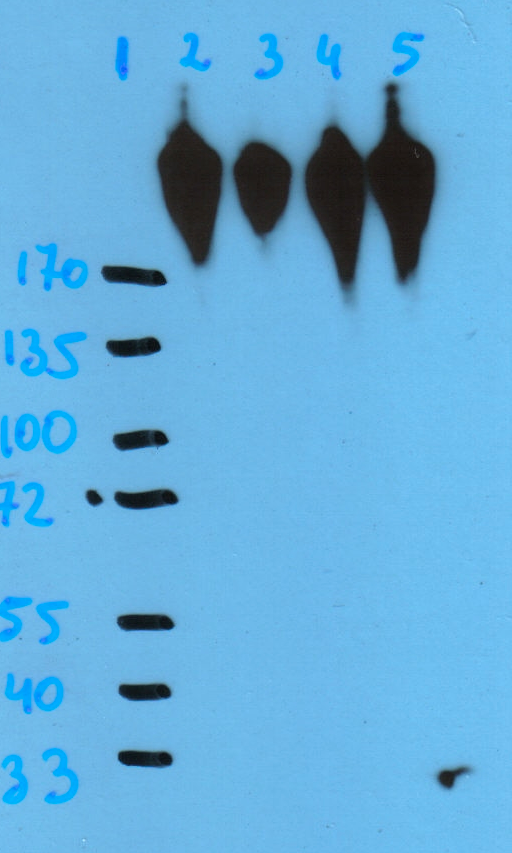 1 2 3 4 5
170
135
100
72
55
40
33